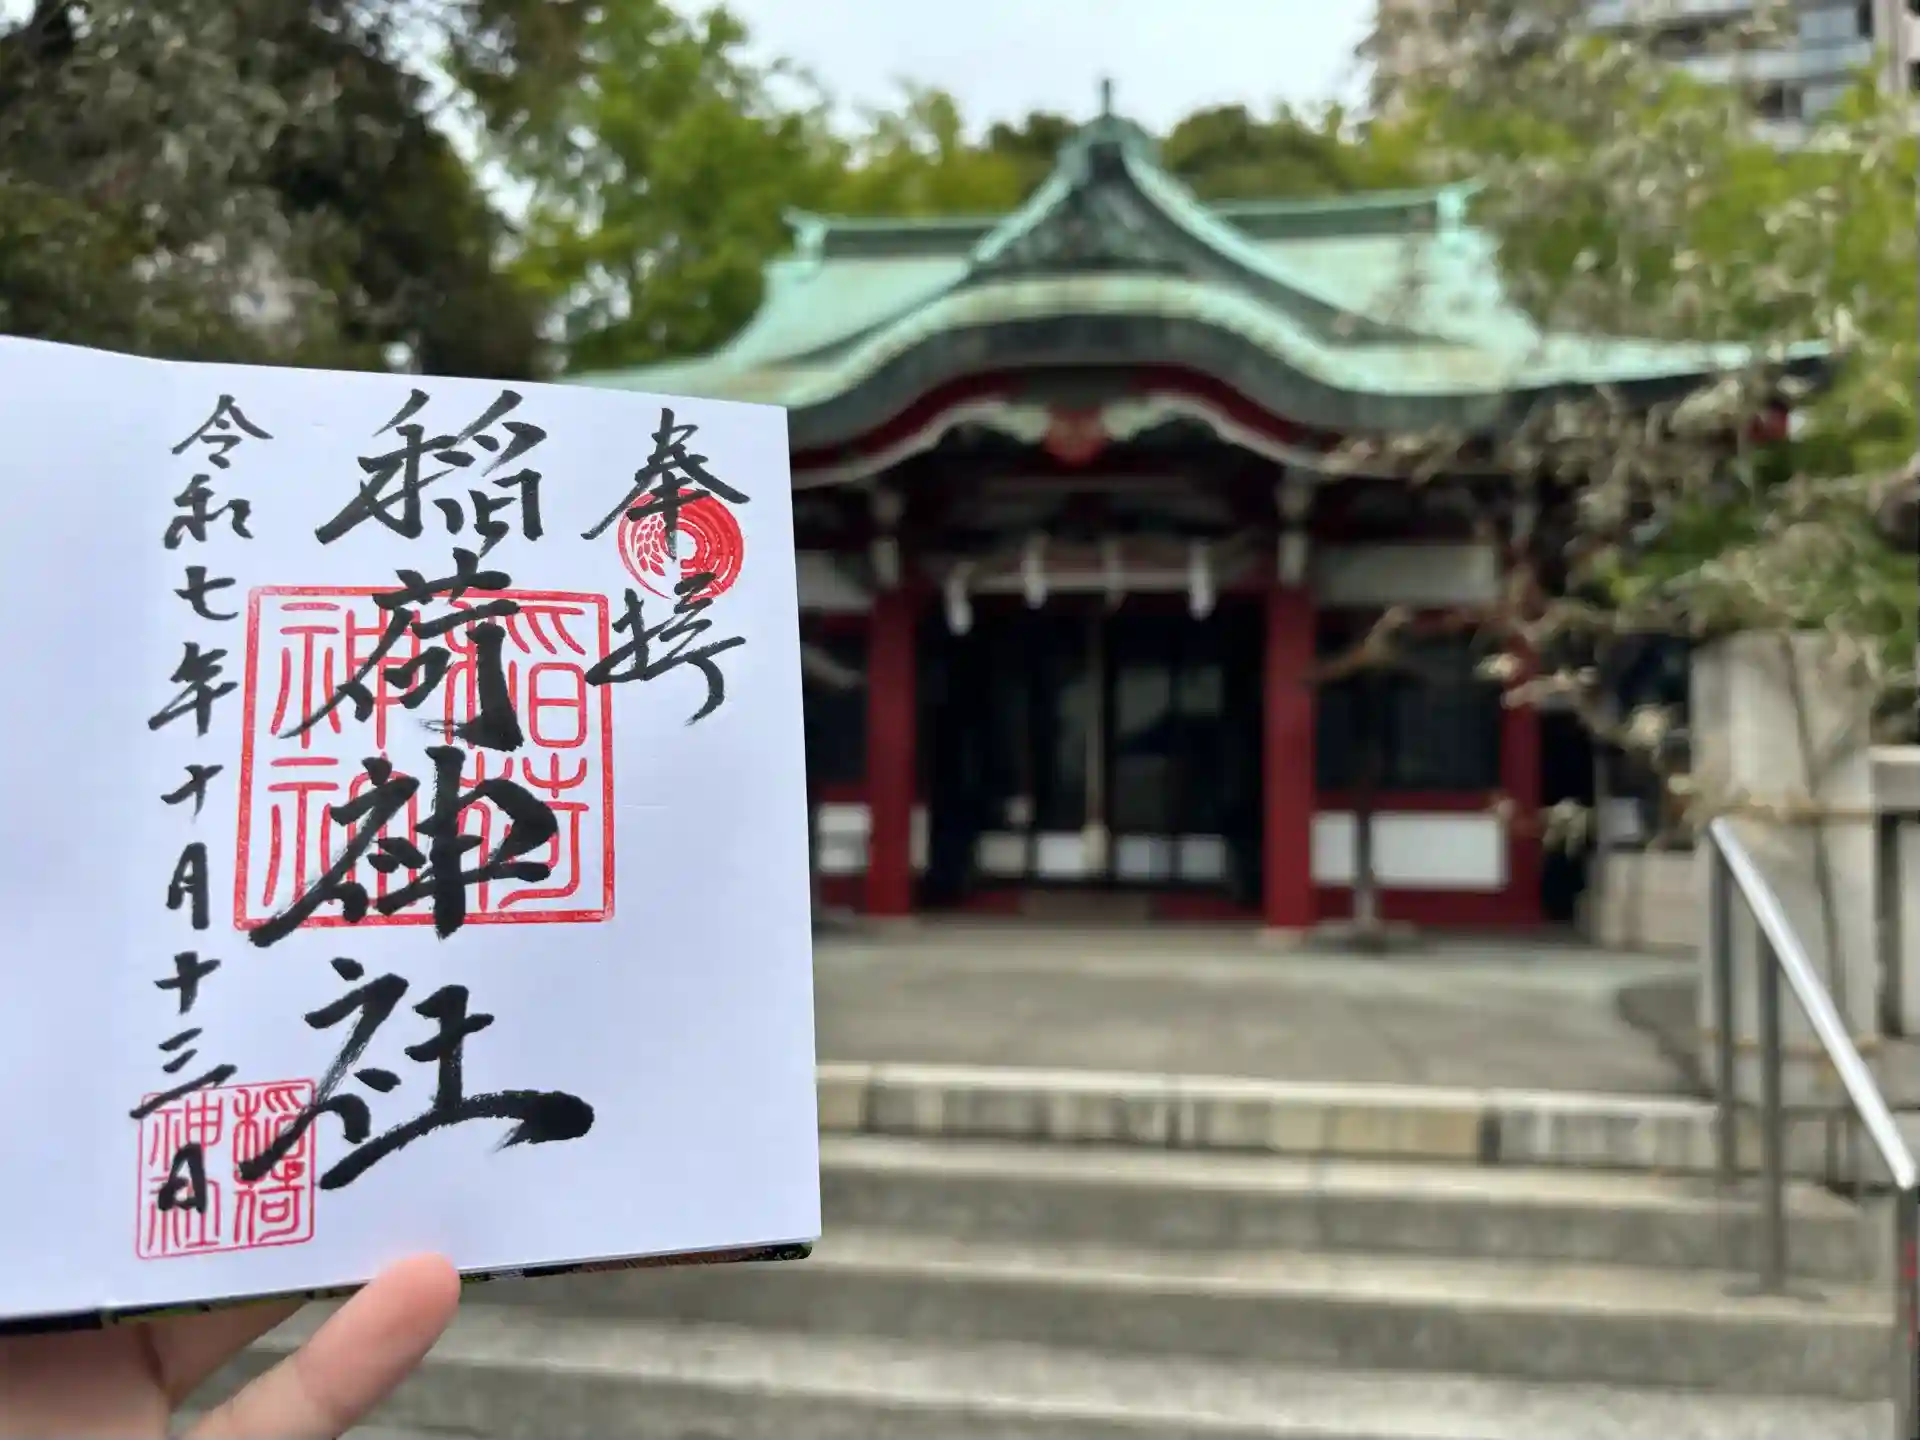 奉拝
稲荷神社
令和七年十月十三日
稲荷
神社
稲荷
神社